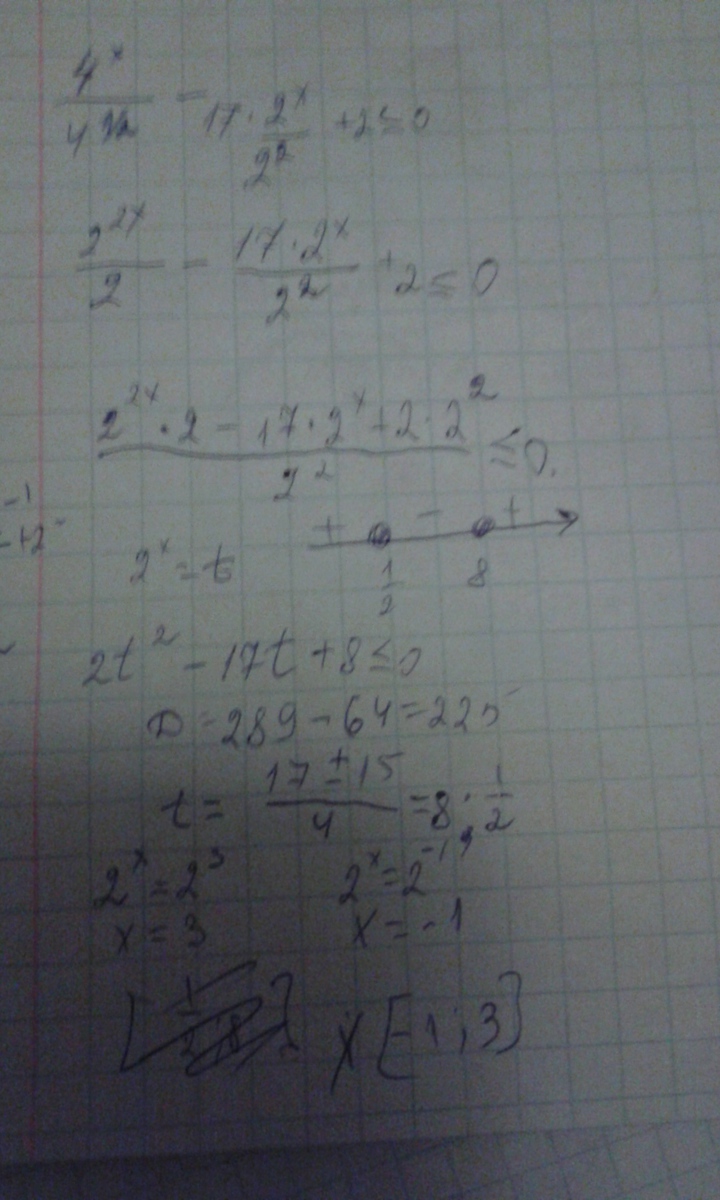 4^x / 4^(1/2) - 17 · 2^x / 2^2 + 2 ≤ 0
2^(2x) / 2 - 17 · 2^x / 2^2 + 2 ≤ 0
(2^(2x) · 2 - 17 · 2^x + 2 · 2^2) / 2^2 ≤ 0.
+ - +
2^x = t 1/2 8
2t^2 - 17t + 8 ≤ 0
D = 289 - 64 = 225
t = (17 ± 15) / 4 = 8; 1/2
2^x = 2^3 2^x = 2^-1
x = 3 x = -1
x [-1; 3]